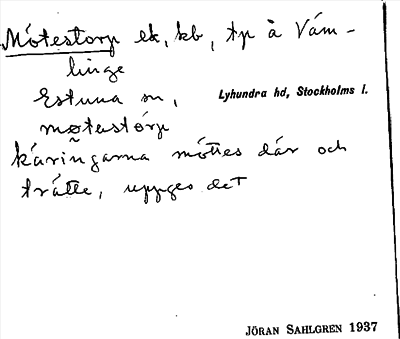 Mötestorp ek, kb, tp å Väm-
linge
Estuna sn, Lyhundra hd, Stockholms l.
møtastórp
käringarna möttes där och
trätte, uppges det
JÖRAN SAHLGREN 1937